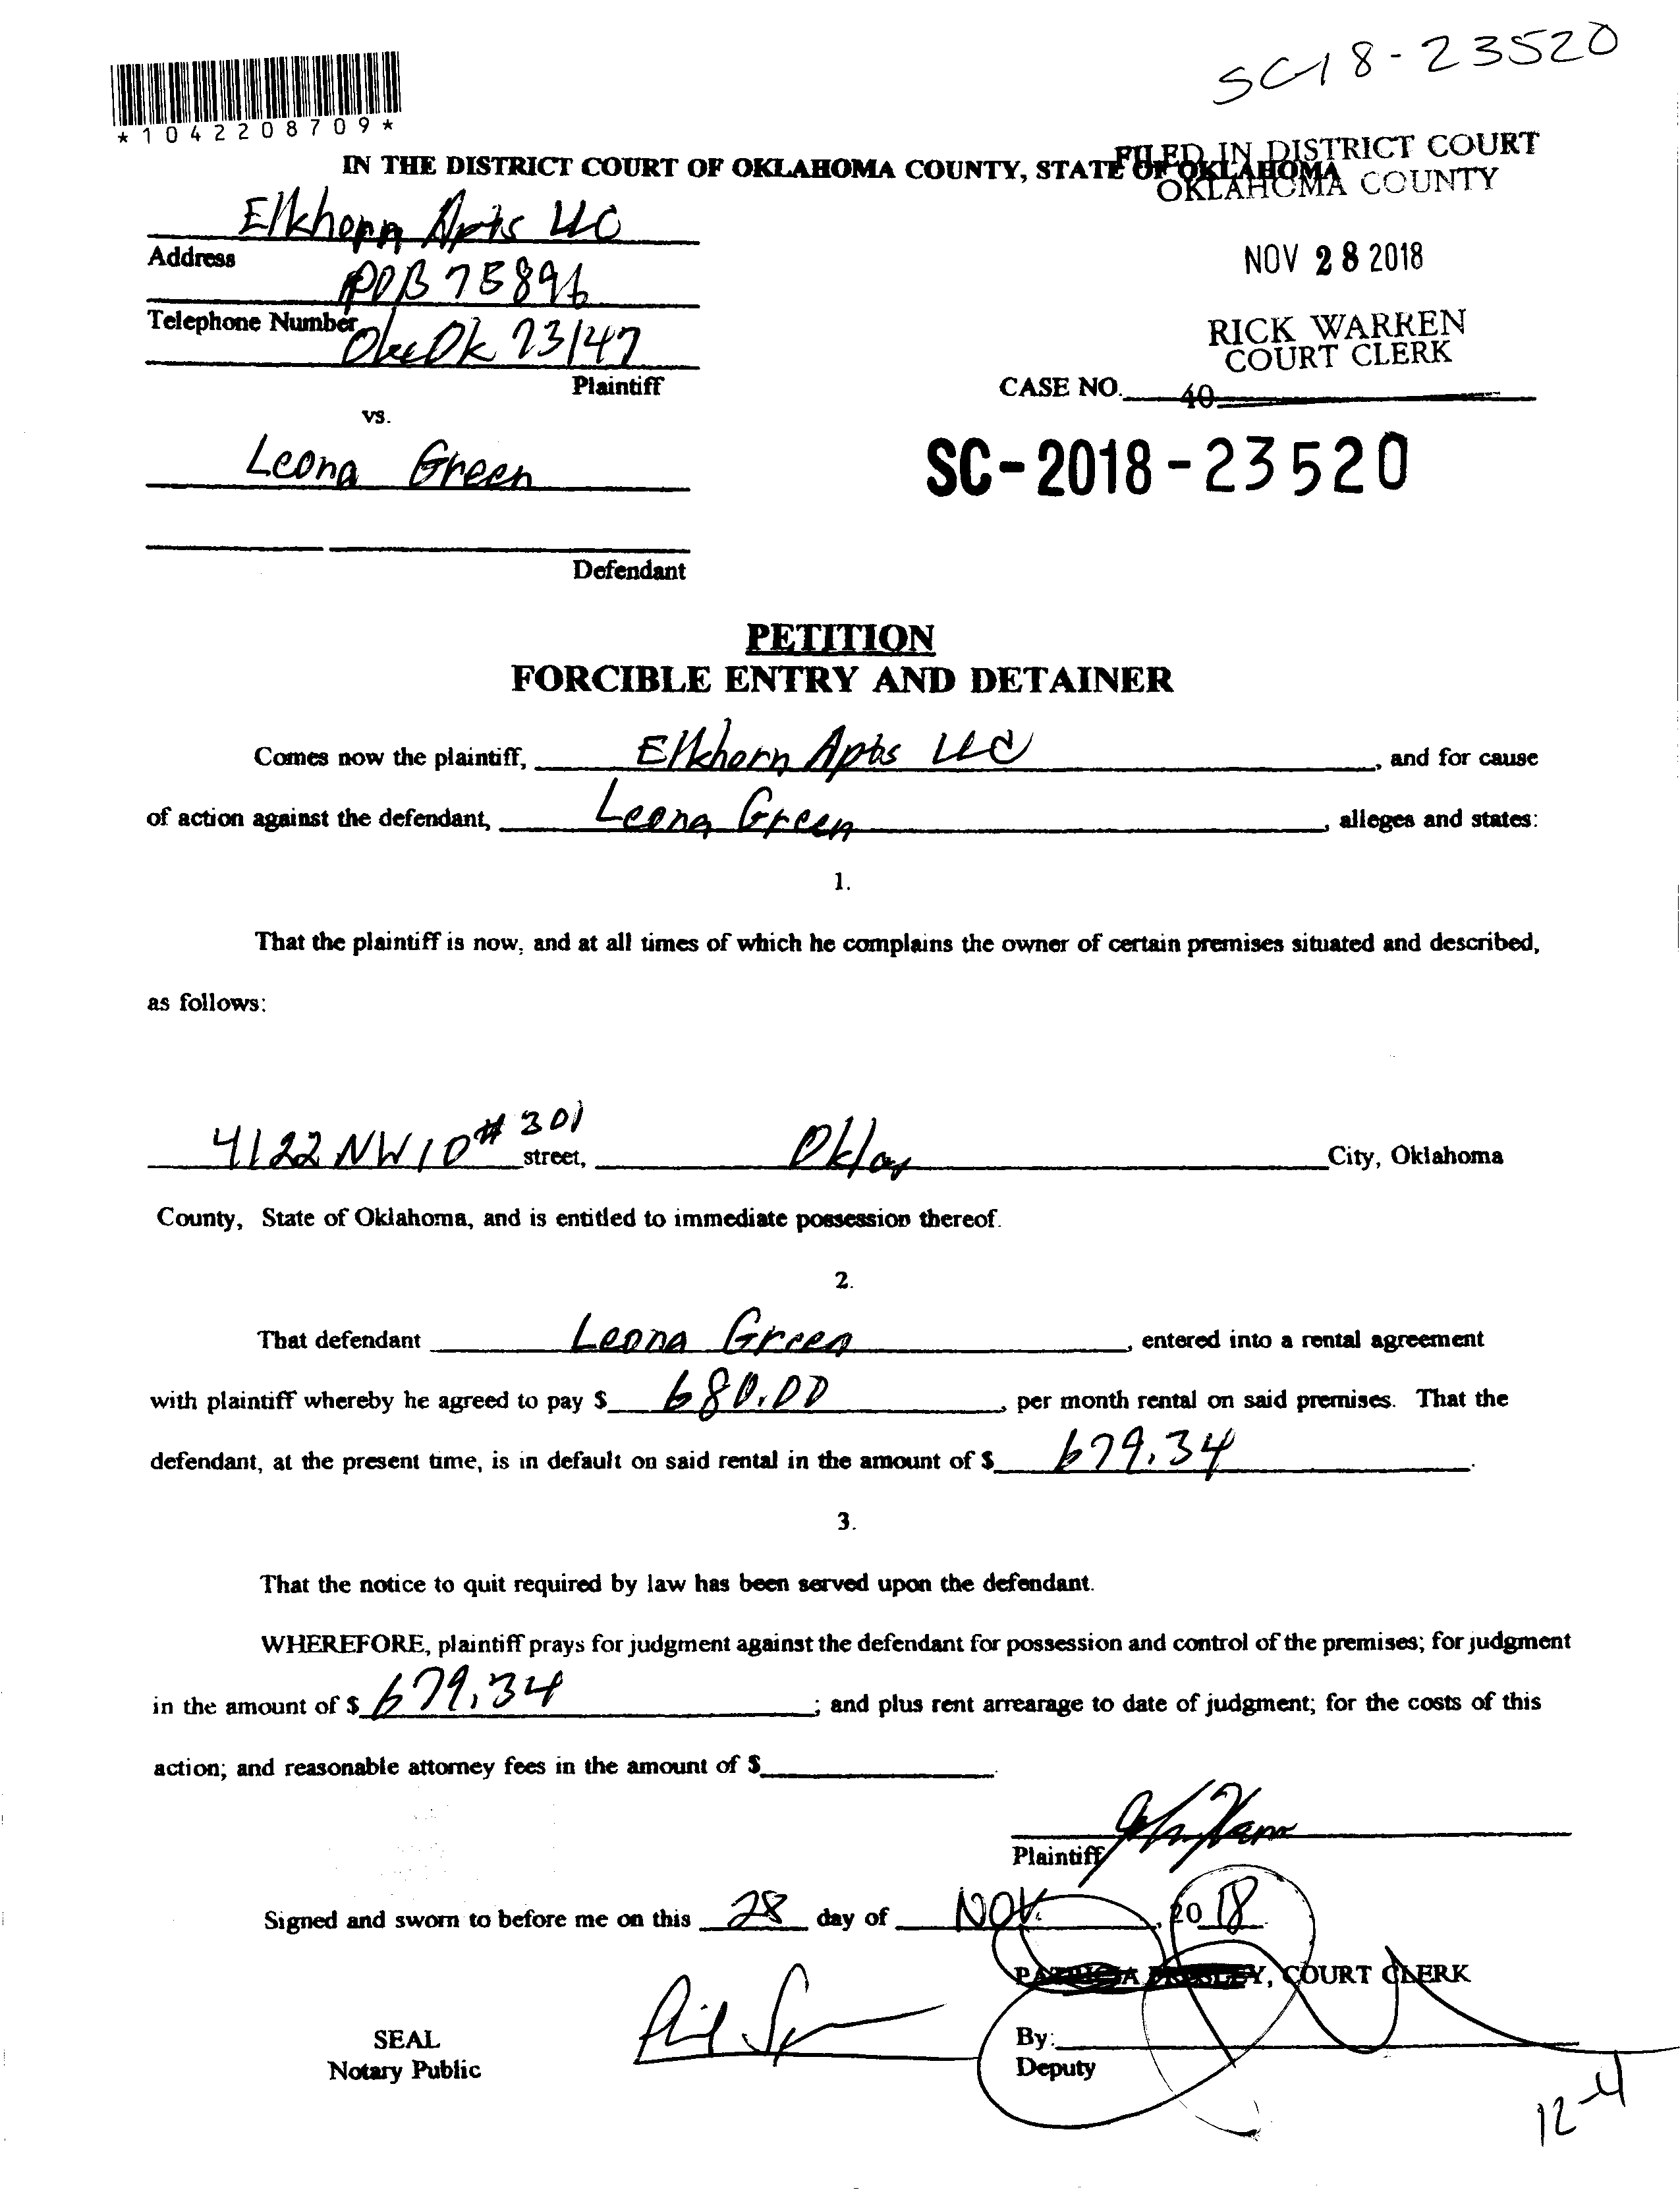 SC-18-23520
*1042208709*
FILED IN DISTRICT COURT
OKLAHOMA COUNTY
IN THE DISTRICT COURT OF OKLAHOMA COUNTY, STATE OF OKLAHOMA
Elkhorn Apts LLC
Address
POB 75896
NOV 28 2018
Telephone Number
Okc Ok 73147
RICK WARREN
COURT CLERK
Plaintiff
CASE NO. 40
vs.
Leona Green
SC-2018-23520
Defendant
PETITION
FORCIBLE ENTRY AND DETAINER
Comes now the plaintiff, Elkhorn Apts LLC, and for cause
of action against the defendant, Leona Green, alleges and states:
1.
That the plaintiff is now, and at all times of which he complains the owner of certain premises situated and described,
as follows:
4122 NW 10 #301 street, City, Oklahoma
County, State of Oklahoma, and is entitled to immediate possession thereof.
2.
That defendant Leona Green, entered into a rental agreement
with plaintiff whereby he agreed to pay $ 680.00, per month rental on said premises. That the
defendant, at the present time, is in default on said rental in the amount of $ 679.34.
3.
That the notice to quit required by law has been served upon the defendant.
WHEREFORE, plaintiff prays for judgment against the defendant for possession and control of the premises; for judgment
in the amount of $ 679.34; and plus rent arrearage to date of judgment; for the costs of this
action; and reasonable attorney fees in the amount of $.
Plaintiff
Signed and sworn to before me on this 28 day of NOV., 2018.
PATRICIA PRESLEY, COURT CLERK
SEAL
By:
Notary Public
Deputy
12-4